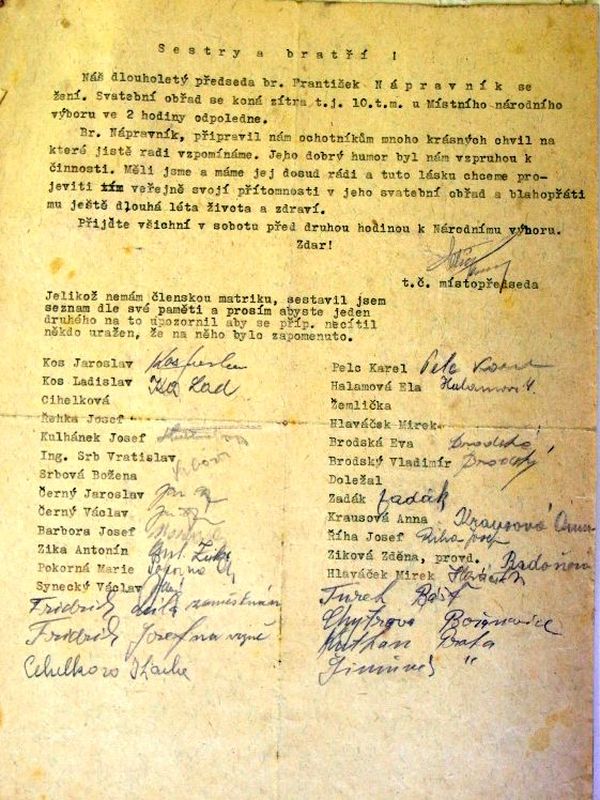 Sestry a bratří !
Náš dlouholetý předseda br. František Nápravník se
žení. Svatební obřad se koná zítra t.j. 10.t.m. u Místního národního
výboru ve 2 hodiny odpoledne.
Br. Nápravník, připravil nám ochotníkům mnoho krásných chvil na
které jistě radi vzpomínáme. Jeho dobrý humor byl nám vzpruhou k
činnosti. Měli jsme a máme jej dosud rádi a tuto lásku chceme pro-
jeviti veřejně svojí přítomností v jeho svatební obřad a blahopřáti
mu ještě dlouhá léta života a zdraví.
Přijďte všichní v sobotu před druhou hodinou k Národnímu výboru.
Zdar!
t.č. místopředseda
Jelikož nemám členskou matriku, sestavil jsem
seznam dle své paměti a prosím abyste jeden
druhého na to upozornil aby se příp. necítil
někdo uražen, že na něho bylo zapomenuto.
Kos Jaroslav
Kos Ladislav Kos Lad
Cihelková
Řehka Josef
Kulhánek Josef
Ing. Srb Vratislav
Srbová Božena
Černý Jaroslav
Černý Václav
Barbora Josef
Zika Antonín Ant. Zika
Pokorná Marie Pokorná M
Synecký Václav
Fridrich zaměstnán
Fridrich Josef
Pelc Karel Pelc Karel
Halamová Ela Halamová
Žemlička
Hlaváček Mirek
Brodská Eva Brodská
Brodský Vladimír Brodský
Doležal
Zadák Zadák
Krausová Anna Krausová Anna
Říha Josef Říha Josef
Ziková Zděna, provd. Radoňová
Hlaváček Mirek Hlaváček
Turek
Chytrova